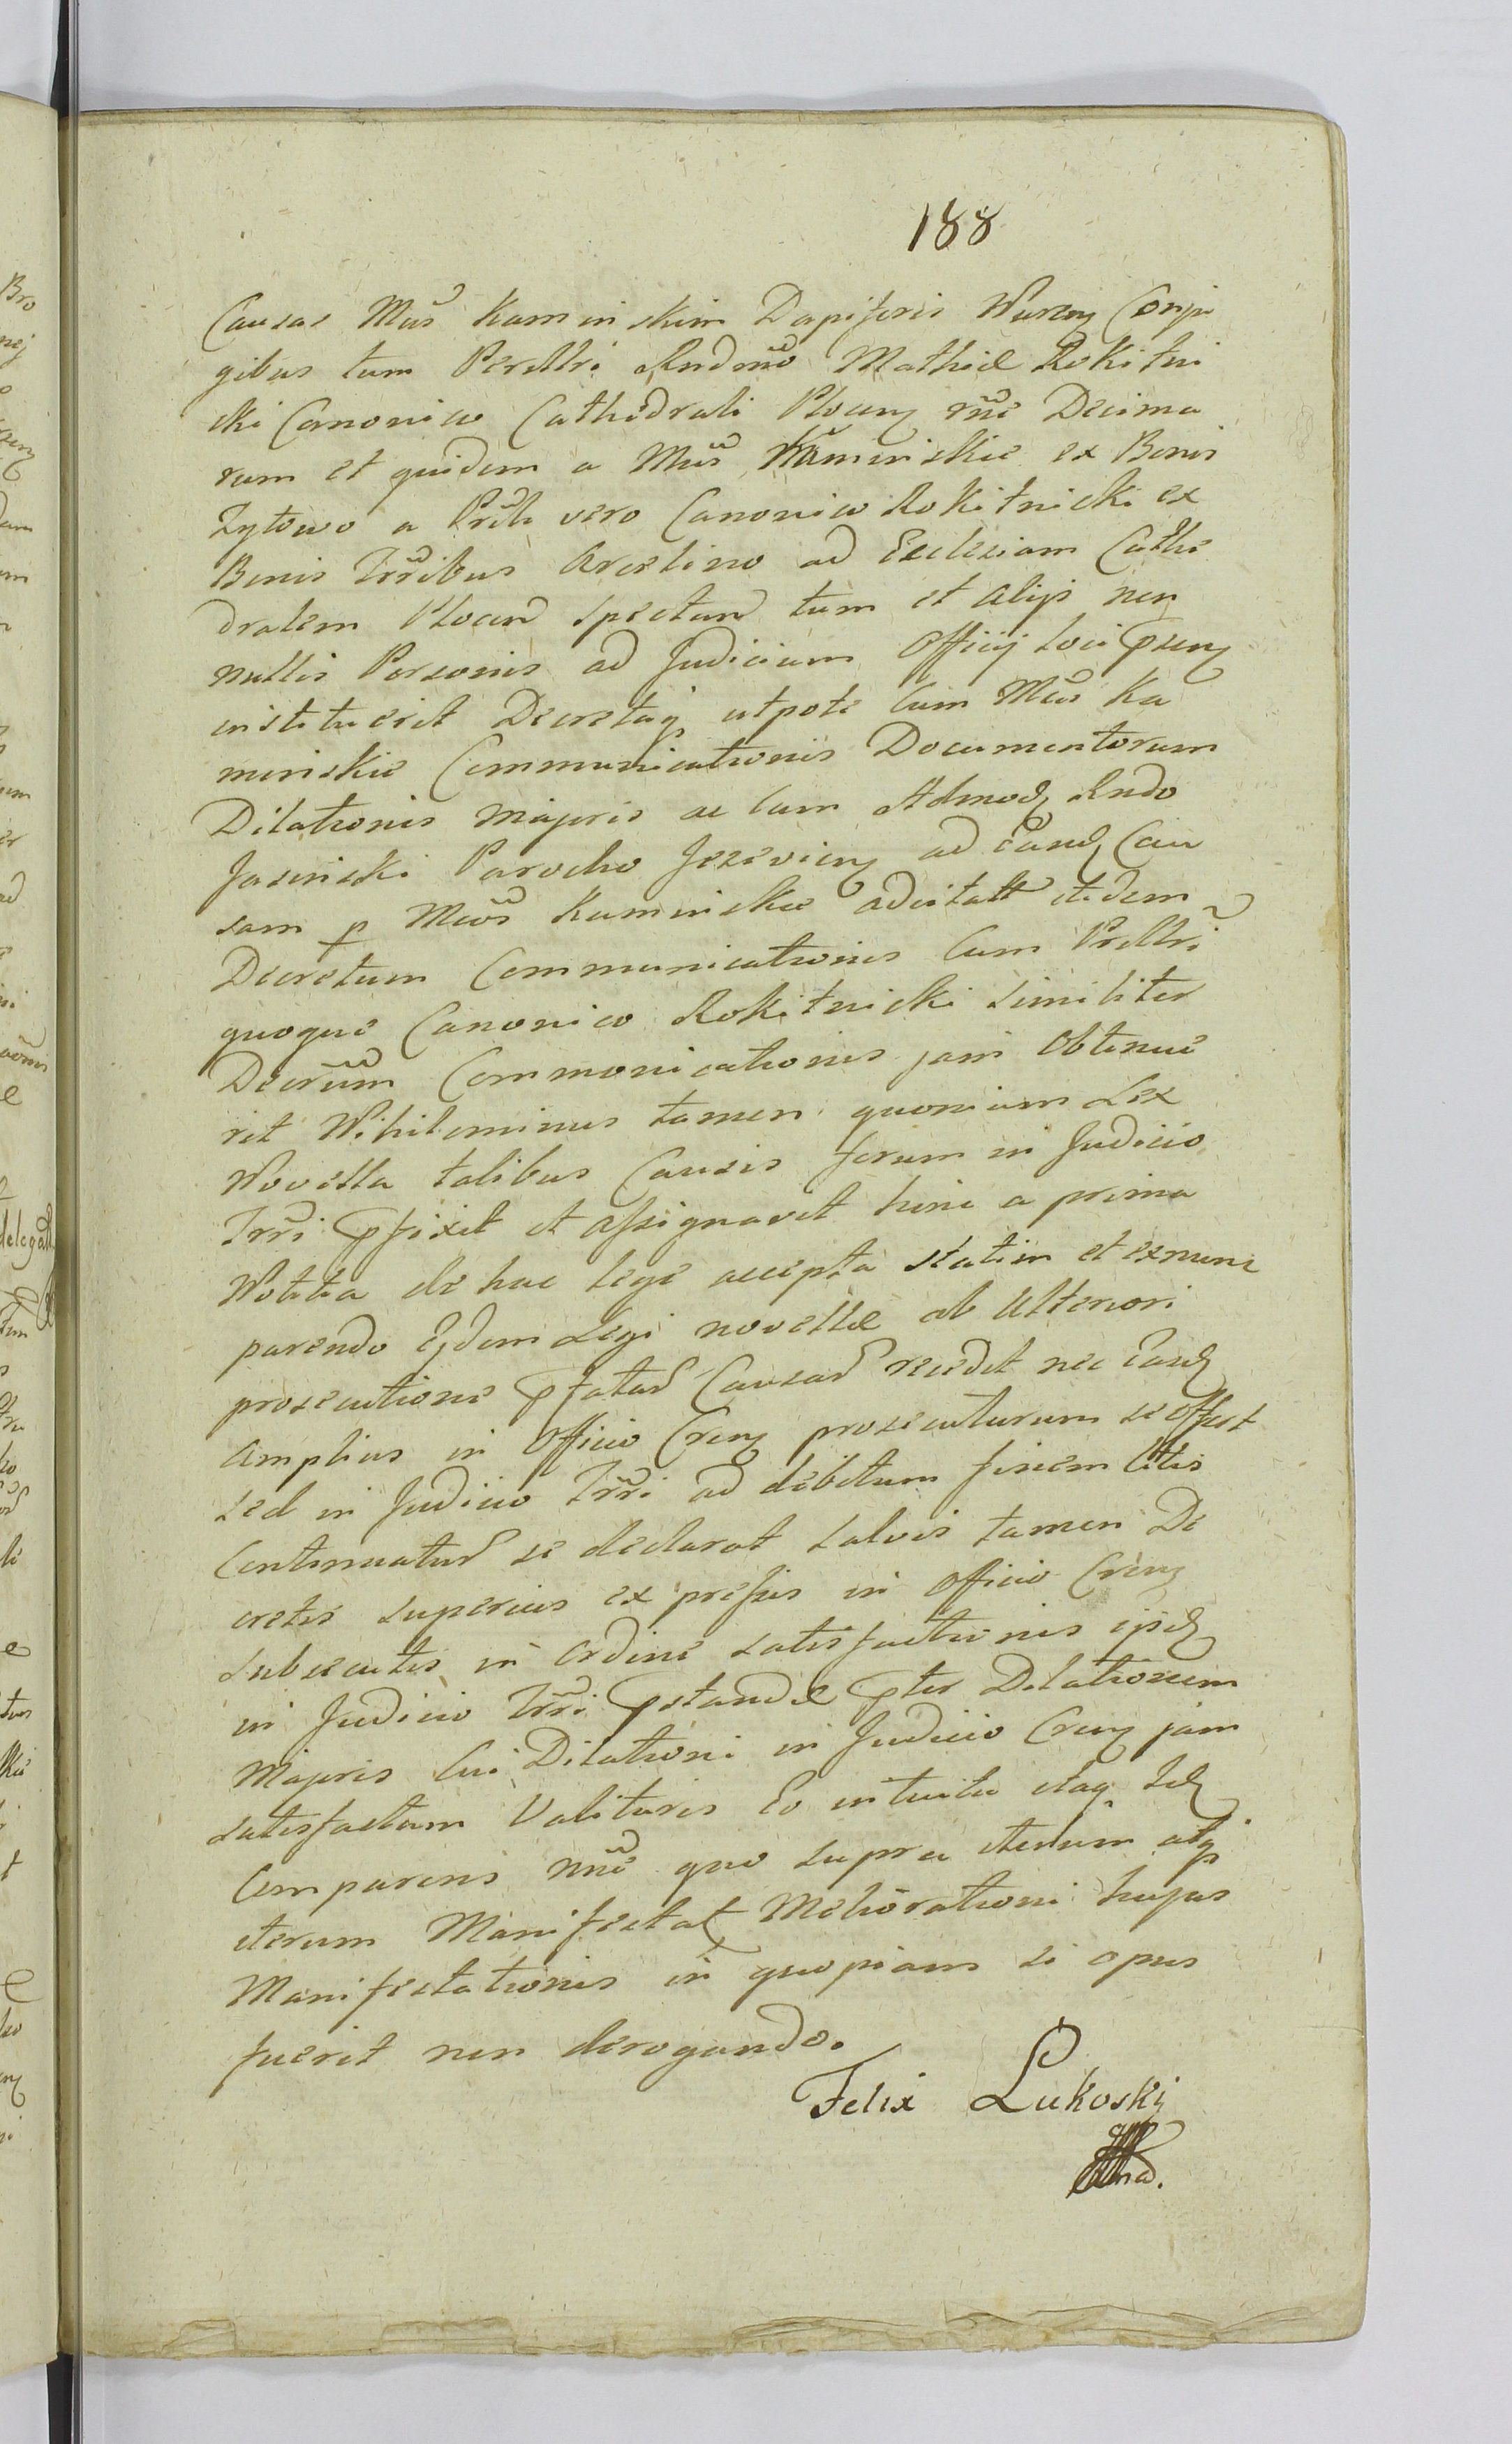 188
Causas Mĉis Kaminskim Dapiferis Wizneng Conju
gibus tum Perillri Rndmo Mathiæ Rokitni
cki Canonico Cathedrali Plocens rne Decima
rum et quidem a Mcis Kaminskie ex Bonis
Zytowo a Prlli vero Canonico Rokitnicki ex
Bonis Trribus Arcelino ad Ecclesiam Cathe
dralem Plocen spectan tum et alijs non
nullis Personis ad Judicium Officij loci psens
instituerit Decretaq utpote cum Mcis Ka
minskie Communicationis Documentorum
Dilationis Majoris ac cum Admod Rndo
Jasinski Parocho Jezevien ad eand Cau
sam p Mcos Kaminskie adcitatt itidem
Decretum Communicationis cum Prllri
quoque Canonico Rokitnicki similiter
Decrum Communicationis jam obtinue
rit Nihilominus tamen quoniam Lex
Novella talibus Causis forum in Judicio
Trri pfixit et assignavit hinc a prima
Notitia de hac lege accepta statim et exnunc
parendo Eidem Legi novellæ ab ulteriori
prosecutione pfatar Causar recedit nec easd
amplius in Officio Cren prosecuturum se offert
sed in Judicio Trri ad debitum finem litis
Continuatur se declarat salvis tamen De
cretis superius expressis in Officio Cren
subsecutis in ordine satisfactionis ijsd
in Judicio Trri pstandæ pter Dilationem
Majoris cui Dilationi in Judicio Cren jam
satisfactum Valituris Eo intuitu itaq Id
Comparens nne quo supra iterum atq
iterum Manifestat Meliorationi hujus
Manifestationis in quopiam si opus
fuerit non derogando.
Felix Lukoskj